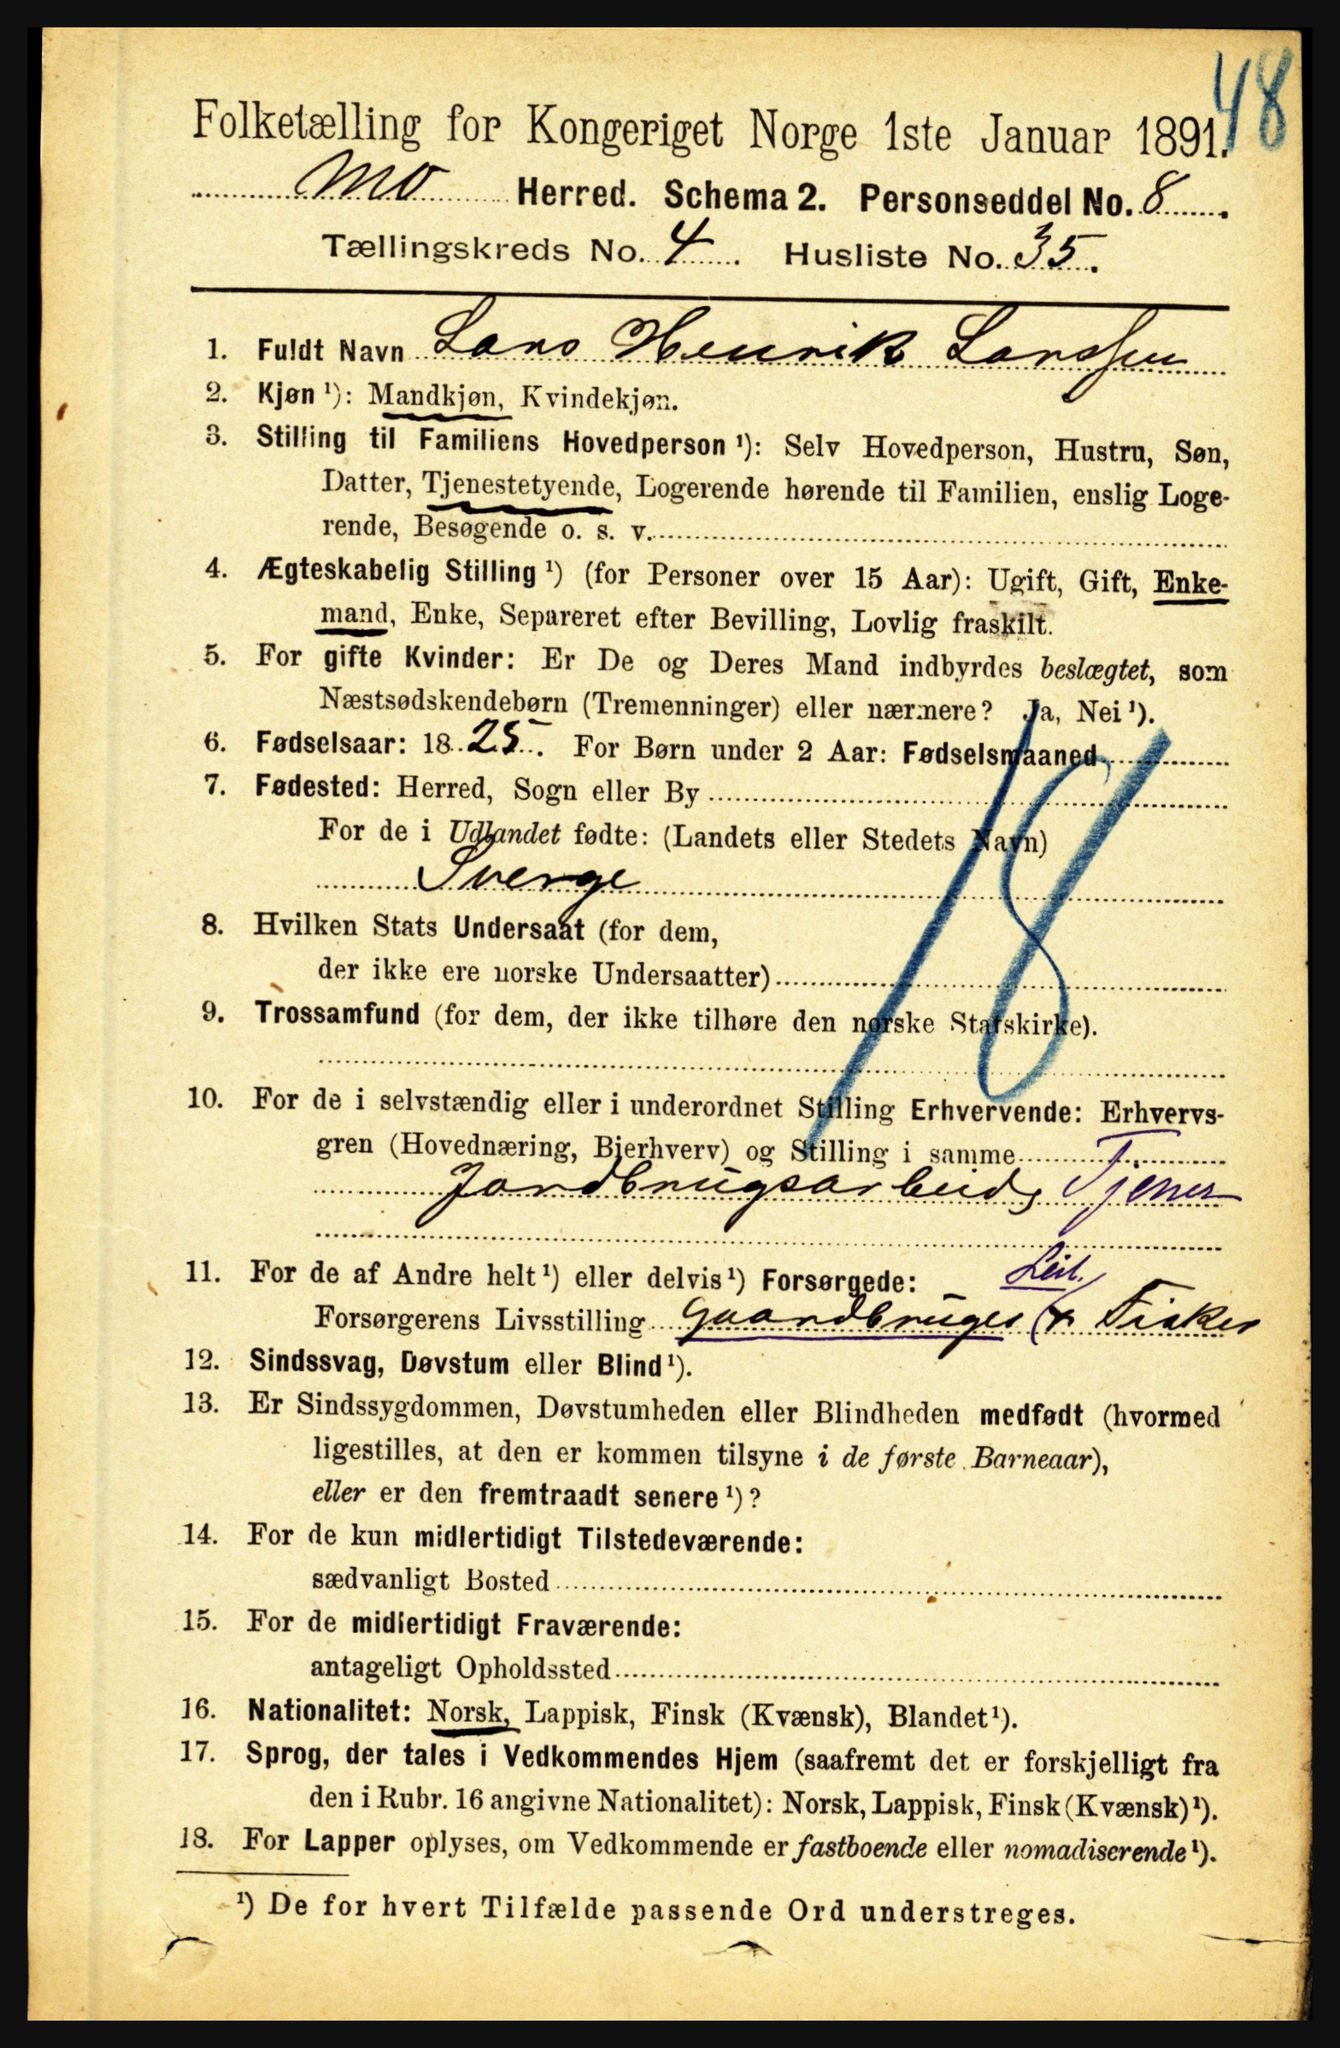 48
Folketælling for Kongeriget Norge 1ste Januar 1891.
Mo Herred. Schema 2. Personseddel No. 8.
Tællingskreds No. 4. Husliste No. 35.
1. Fuldt Navn Lars Henrik Larssen
2. Kjøn ¹): Mandkjøn, Kvindekjøn.
3. Stilling til Familiens Hovedperson ¹): Selv Hovedperson, Hustru, Søn,
Datter, Tjenestetyende, Logerende hørende til Familien, enslig Loge-
rende, Besøgende o. s. v.
4. Ægteskabelig Stilling ¹) (for Personer over 15 Aar): Ugift, Gift, Enke-
mand, Enke, Separeret efter Bevilling, Lovlig fraskilt.
5. For gifte Kvinder: Er De og Deres Mand indbyrdes beslægtet, som
Næstsødskendebørn (Tremenninger) eller nærmere? Ja, Nei ¹).
6. Fødselsaar: 18 25. For Børn under 2 Aar: Fødselsmaaned
7. Fødested: Herred, Sogn eller By
For de i Udlandet fødte: (Landets eller Stedets Navn)
Sverge
18
8. Hvilken Stats Undersaat (for dem,
der ikke ere norske Undersaatter)
9. Trossamfund (for dem, der ikke tilhøre den norske Statskirke).
10. For de i selvstændig eller i underordnet Stilling Erhvervende: Erhvervs-
gren (Hovednæring, Bierhverv) og Stilling i samme
Jordbrugsarbeide Tjener
11. For de af Andre helt ¹) eller delvis ¹) Forsørgede: Leil.
Forsørgerens Livsstilling Gaardbruger & Fisker
12. Sindssvag, Døvstum eller Blind ¹).
13. Er Sindssygdommen, Døvstumheden eller Blindheden medfødt (hvormed
ligestilles, at den er kommen tilsyne i de første Barneaar),
eller er den fremtraadt senere ¹)?
14. For de kun midlertidigt Tilstedeværende:
sædvanligt Bosted
15. For de midlertidigt Fraværende:
antageligt Opholdssted
16. Nationalitet: Norsk, Lappisk, Finsk (Kvænsk), Blandet ¹).
17. Sprog, der tales i Vedkommendes Hjem (saafremt det er forskjelligt fra
den i Rubr. 16 angivne Nationalitet): Norsk, Lappisk, Finsk (Kvænsk) ¹).
18. For Lapper oplyses, om Vedkommende er fastboende eller nomadiserende ¹).
¹) De for hvert Tilfælde passende Ord understreges.